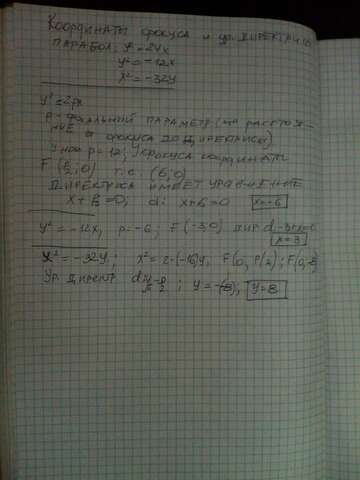 КООРДИНАТЫ ФОКУСА И УР. ДИРЕКТРИС
ПАРАБОЛ: y²=24x
y²=-12x
x²=-32y
y²=2px
p - ФОКАЛЬНЫЙ ПАРАМЕТР (ЭТО РАССТОЯ-
НИЕ ОТ ФОКУСА ДО ДИРЕКТРИСЫ)
У нас p=12; У ФОКУСА КООРДИНАТЫ
F (p/2; 0) т.е. (6; 0)
ДИРЕКТРИСА ИМЕЕТ УРАВНЕНИЕ
x+p/2=0; d: x+6=0 x=-6
y²=-12x, p=-6; F(-3;0) ДИР. d: -3+x=0
x=3
x²=-32y; x²=2·(-16)y, F(0, p/2); F(0,-8)
Ур. ДИРЕКТ. d: y=-p/2; y=-(-8); y=8